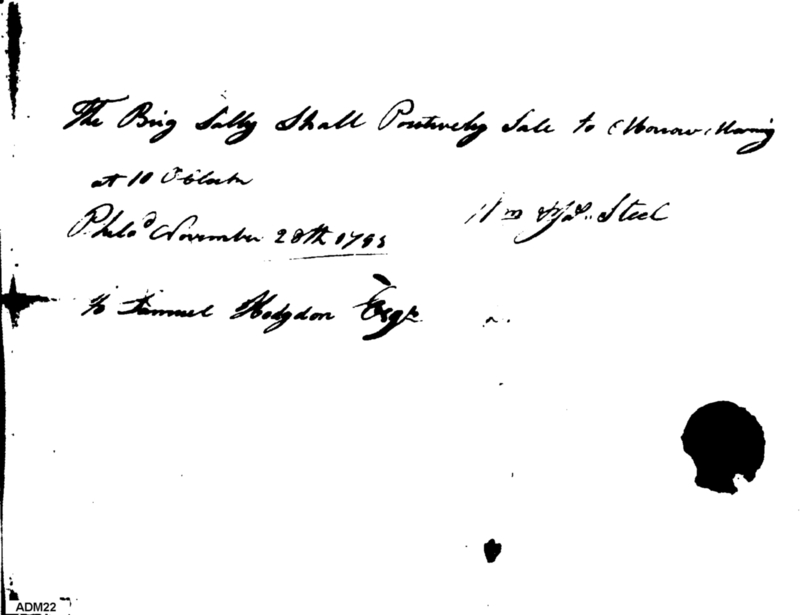 The Brig Sally Shall Positively Sale to Morrow Morning
at 10 O'Clock
Wm & Jas. Steel
Philad November 28th
to Samuel Hodgdon Esqr.
ADM22